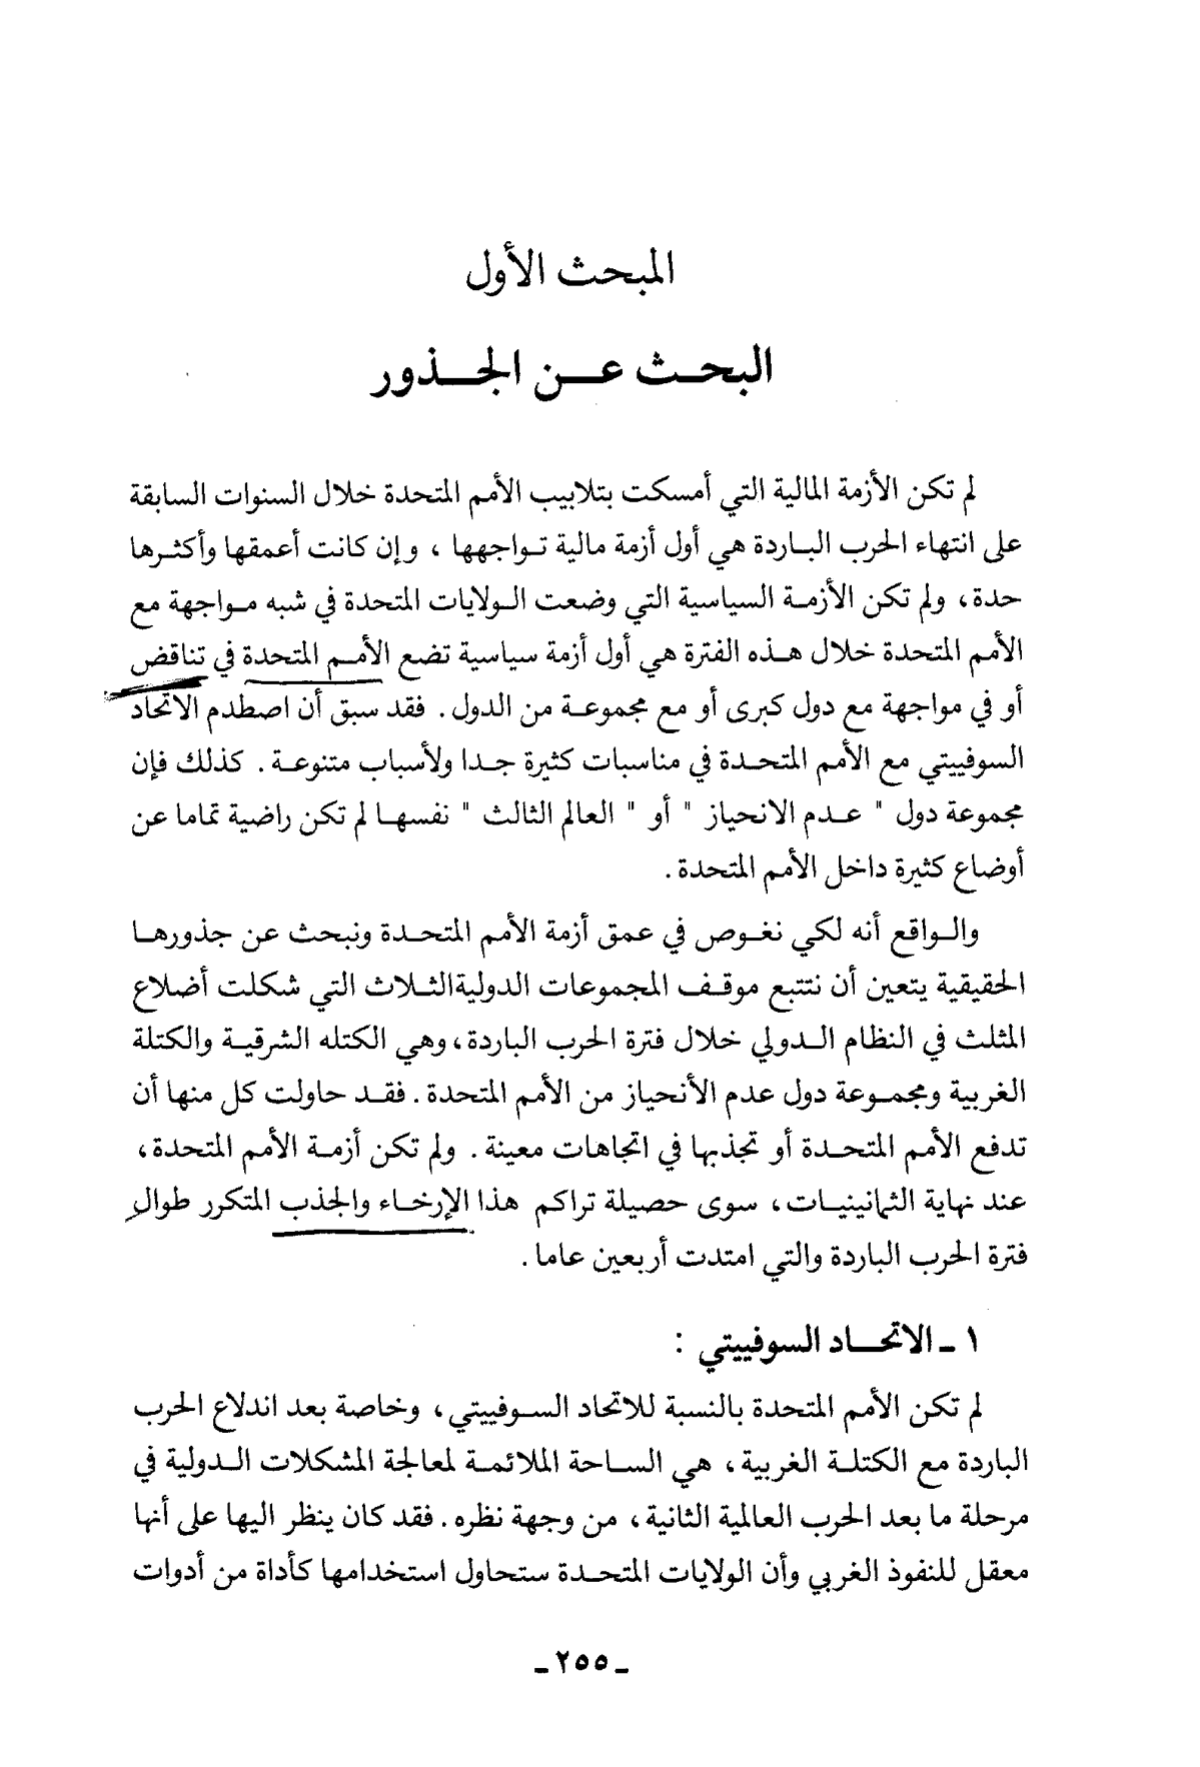 المبحث الأول
البحث عن الجذور
لم تكن الأزمة المالية التي أمسكت بتلابيب الأمم المتحدة خلال السنوات السابقة
على انتهاء الحرب الباردة هي أول أزمة مالية تواجهها ، وإن كانت أعمقها وأكثرها
حدة، ولم تكن الأزمة السياسية التي وضعت الولايات المتحدة في شبه مواجهة مع
الأمم المتحدة خلال هذه الفترة هي أول أزمة سياسية تضع الأمم المتحدة في تناقض
أو في مواجهة مع دول كبرى أو مع مجموعة من الدول. فقد سبق أن اصطدم الاتحاد
السوفييتي مع الأمم المتحدة في مناسبات كثيرة جدا ولأسباب متنوعة. كذلك فإن
مجموعة دول " عدم الانحياز " أو " العالم الثالث " نفسها لم تكن راضية تماما عن
أوضاع كثيرة داخل الأمم المتحدة.
والواقع أنه لكي نغوص في عمق أزمة الأمم المتحدة ونبحث عن جذورها
الحقيقية يتعين أن نتتبع موقف المجموعات الدوليةالثلاث التي شكلت أضلاع
المثلث في النظام الدولي خلال فترة الحرب الباردة، وهي الكتله الشرقية والكتلة
الغربية ومجموعة دول عدم الأنحياز من الأمم المتحدة. فقد حاولت كل منها أن
تدفع الأمم المتحدة أو تجذبها في اتجاهات معينة. ولم تكن أزمة الأمم المتحدة،
عند نهاية الثمانينيات، سوى حصيلة تراكم هذا الإرخاء والجذب المتكرر طوال
فترة الحرب الباردة والتي امتدت أربعين عاما.
١ ـ الاتحاد السوفييتي :
لم تكن الأمم المتحدة بالنسبة للاتحاد السوفييتي، وخاصة بعد اندلاع الحرب
الباردة مع الكتلة الغربية، هي الساحة الملائمة لمعالجة المشكلات الدولية في
مرحلة ما بعد الحرب العالمية الثانية، من وجهة نظره. فقد كان ينظر اليها على أنها
معقل للنفوذ الغربي وأن الولايات المتحدة ستحاول استخدامها كأداة من أدوات
ـ ٢٥٥ ـ